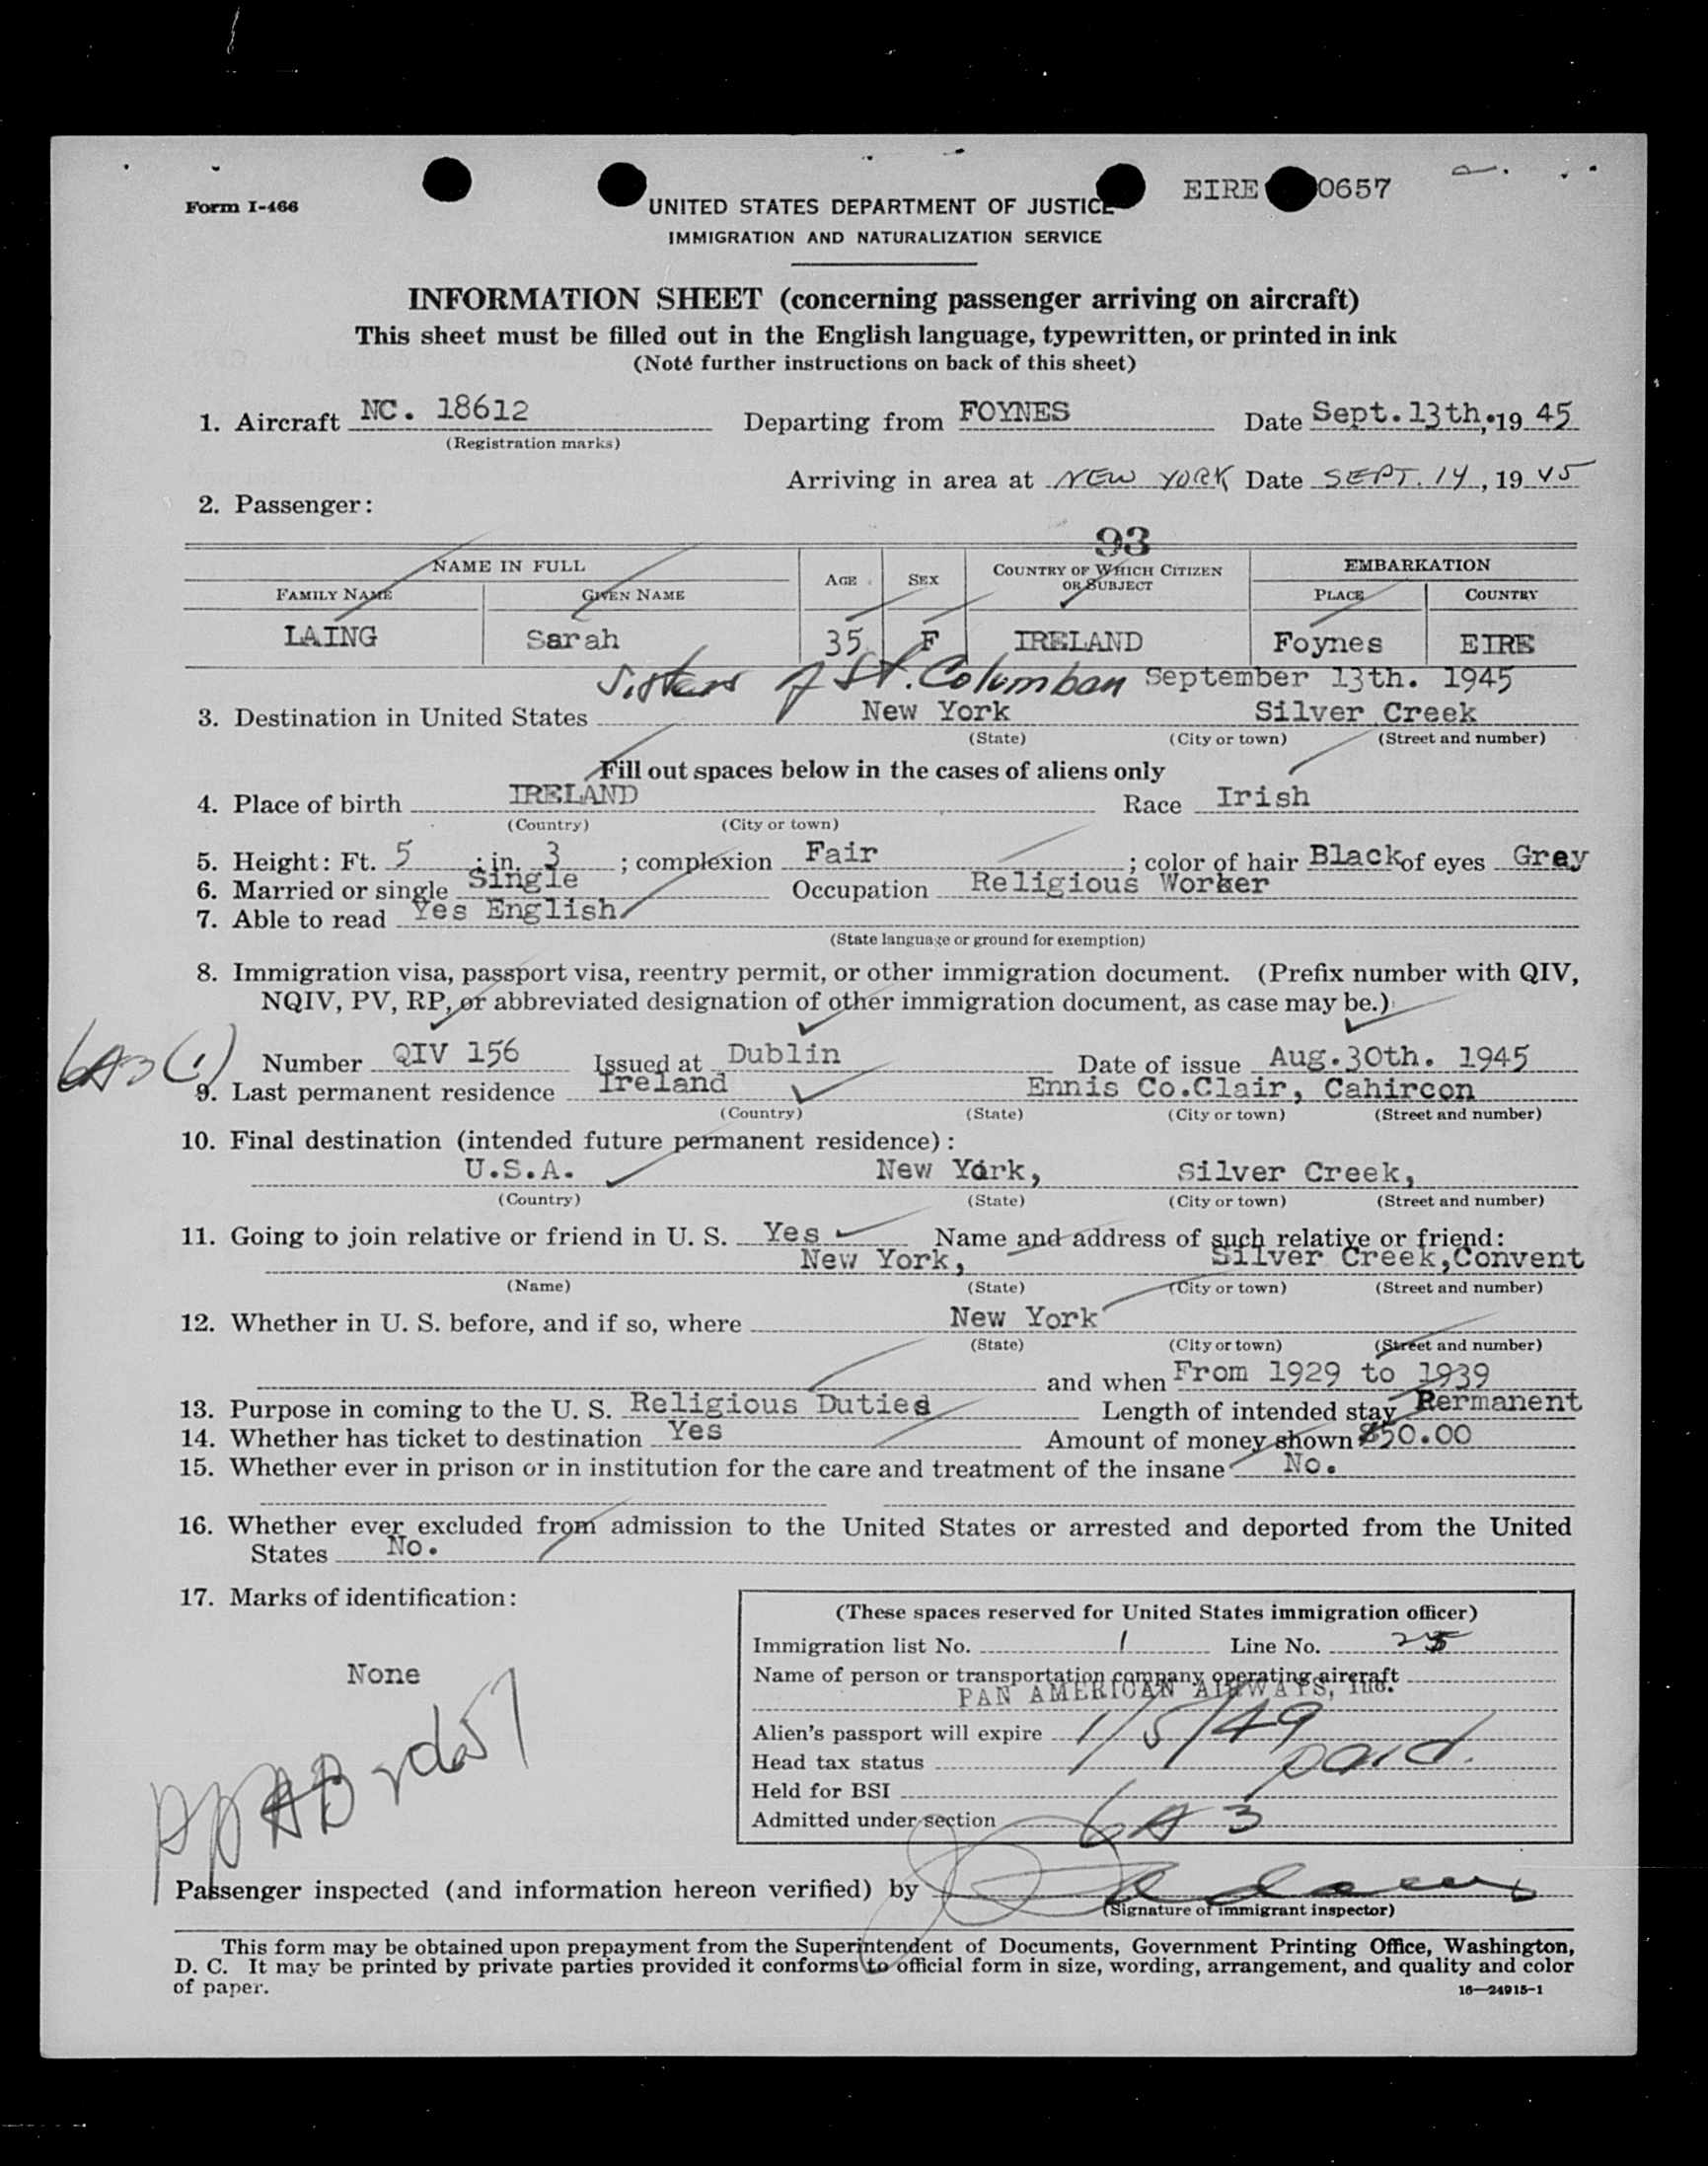 EIRE 0657
Form I-466
UNITED STATES DEPARTMENT OF JUSTICE
IMMIGRATION AND NATURALIZATION SERVICE
INFORMATION SHEET (concerning passenger arriving on aircraft)
This sheet must be filled out in the English language, typewritten, or printed in ink
(Note further instructions on back of this sheet)
1. Aircraft NC. 18612 Departing from FOYNES Date Sept. 13th. 19 45
(Registration marks)
Arriving in area at NEW YORK Date SEPT. 14, 19 45
2. Passenger:
93
NAME IN FULL AGE SEX COUNTRY OF WHICH CITIZEN OR SUBJECT EMBARKATION
FAMILY NAME GIVEN NAME PLACE COUNTRY
LAING Sarah 35 F IRELAND Foynes EIRE
Sisters of St. Columban September 13th. 1945
3. Destination in United States New York Silver Creek
(State) (City or town) (Street and number)
Fill out spaces below in the cases of aliens only
4. Place of birth IRELAND Race Irish
(Country) (City or town)
5. Height: Ft. 5 ; in. 3 ; complexion Fair ; color of hair Black of eyes Grey
6. Married or single Single Occupation Religious Worker
7. Able to read Yes English
(State language or ground for exemption)
8. Immigration visa, passport visa, reentry permit, or other immigration document. (Prefix number with QIV,
NQIV, PV, RP, or abbreviated designation of other immigration document, as case may be.)
6A3(1) Number QIV 156 Issued at Dublin Date of issue Aug. 30th. 1945
9. Last permanent residence Ireland Ennis Co.Clair, Cahircon
(Country) (State) (City or town) (Street and number)
10. Final destination (intended future permanent residence):
U.S.A. New York, Silver Creek,
(Country) (State) (City or town) (Street and number)
11. Going to join relative or friend in U. S. Yes Name and address of such relative or friend:
New York, Silver Creek,Convent
(Name) (State) (City or town) (Street and number)
12. Whether in U. S. before, and if so, where New York
(State) (City or town) (Street and number)
and when From 1929 to 1939
13. Purpose in coming to the U. S. Religious Duties Length of intended stay Permanent
14. Whether has ticket to destination Yes Amount of money shown $50.00
15. Whether ever in prison or in institution for the care and treatment of the insane No.
16. Whether ever excluded from admission to the United States or arrested and deported from the United
States No.
17. Marks of identification:
None
(These spaces reserved for United States immigration officer)
Immigration list No. 1 Line No. 25
Name of person or transportation company operating aircraft
PAN AMERICAN AIRWAYS, Inc.
Alien's passport will expire 1/5/49
Head tax status paid.
Held for BSI
Admitted under section 6A3
Passenger inspected (and information hereon verified) by
(Signature of immigrant inspector)
This form may be obtained upon prepayment from the Superintendent of Documents, Government Printing Office, Washington,
D. C. It may be printed by private parties provided it conforms to official form in size, wording, arrangement, and quality and color
of paper.
16—24915-1